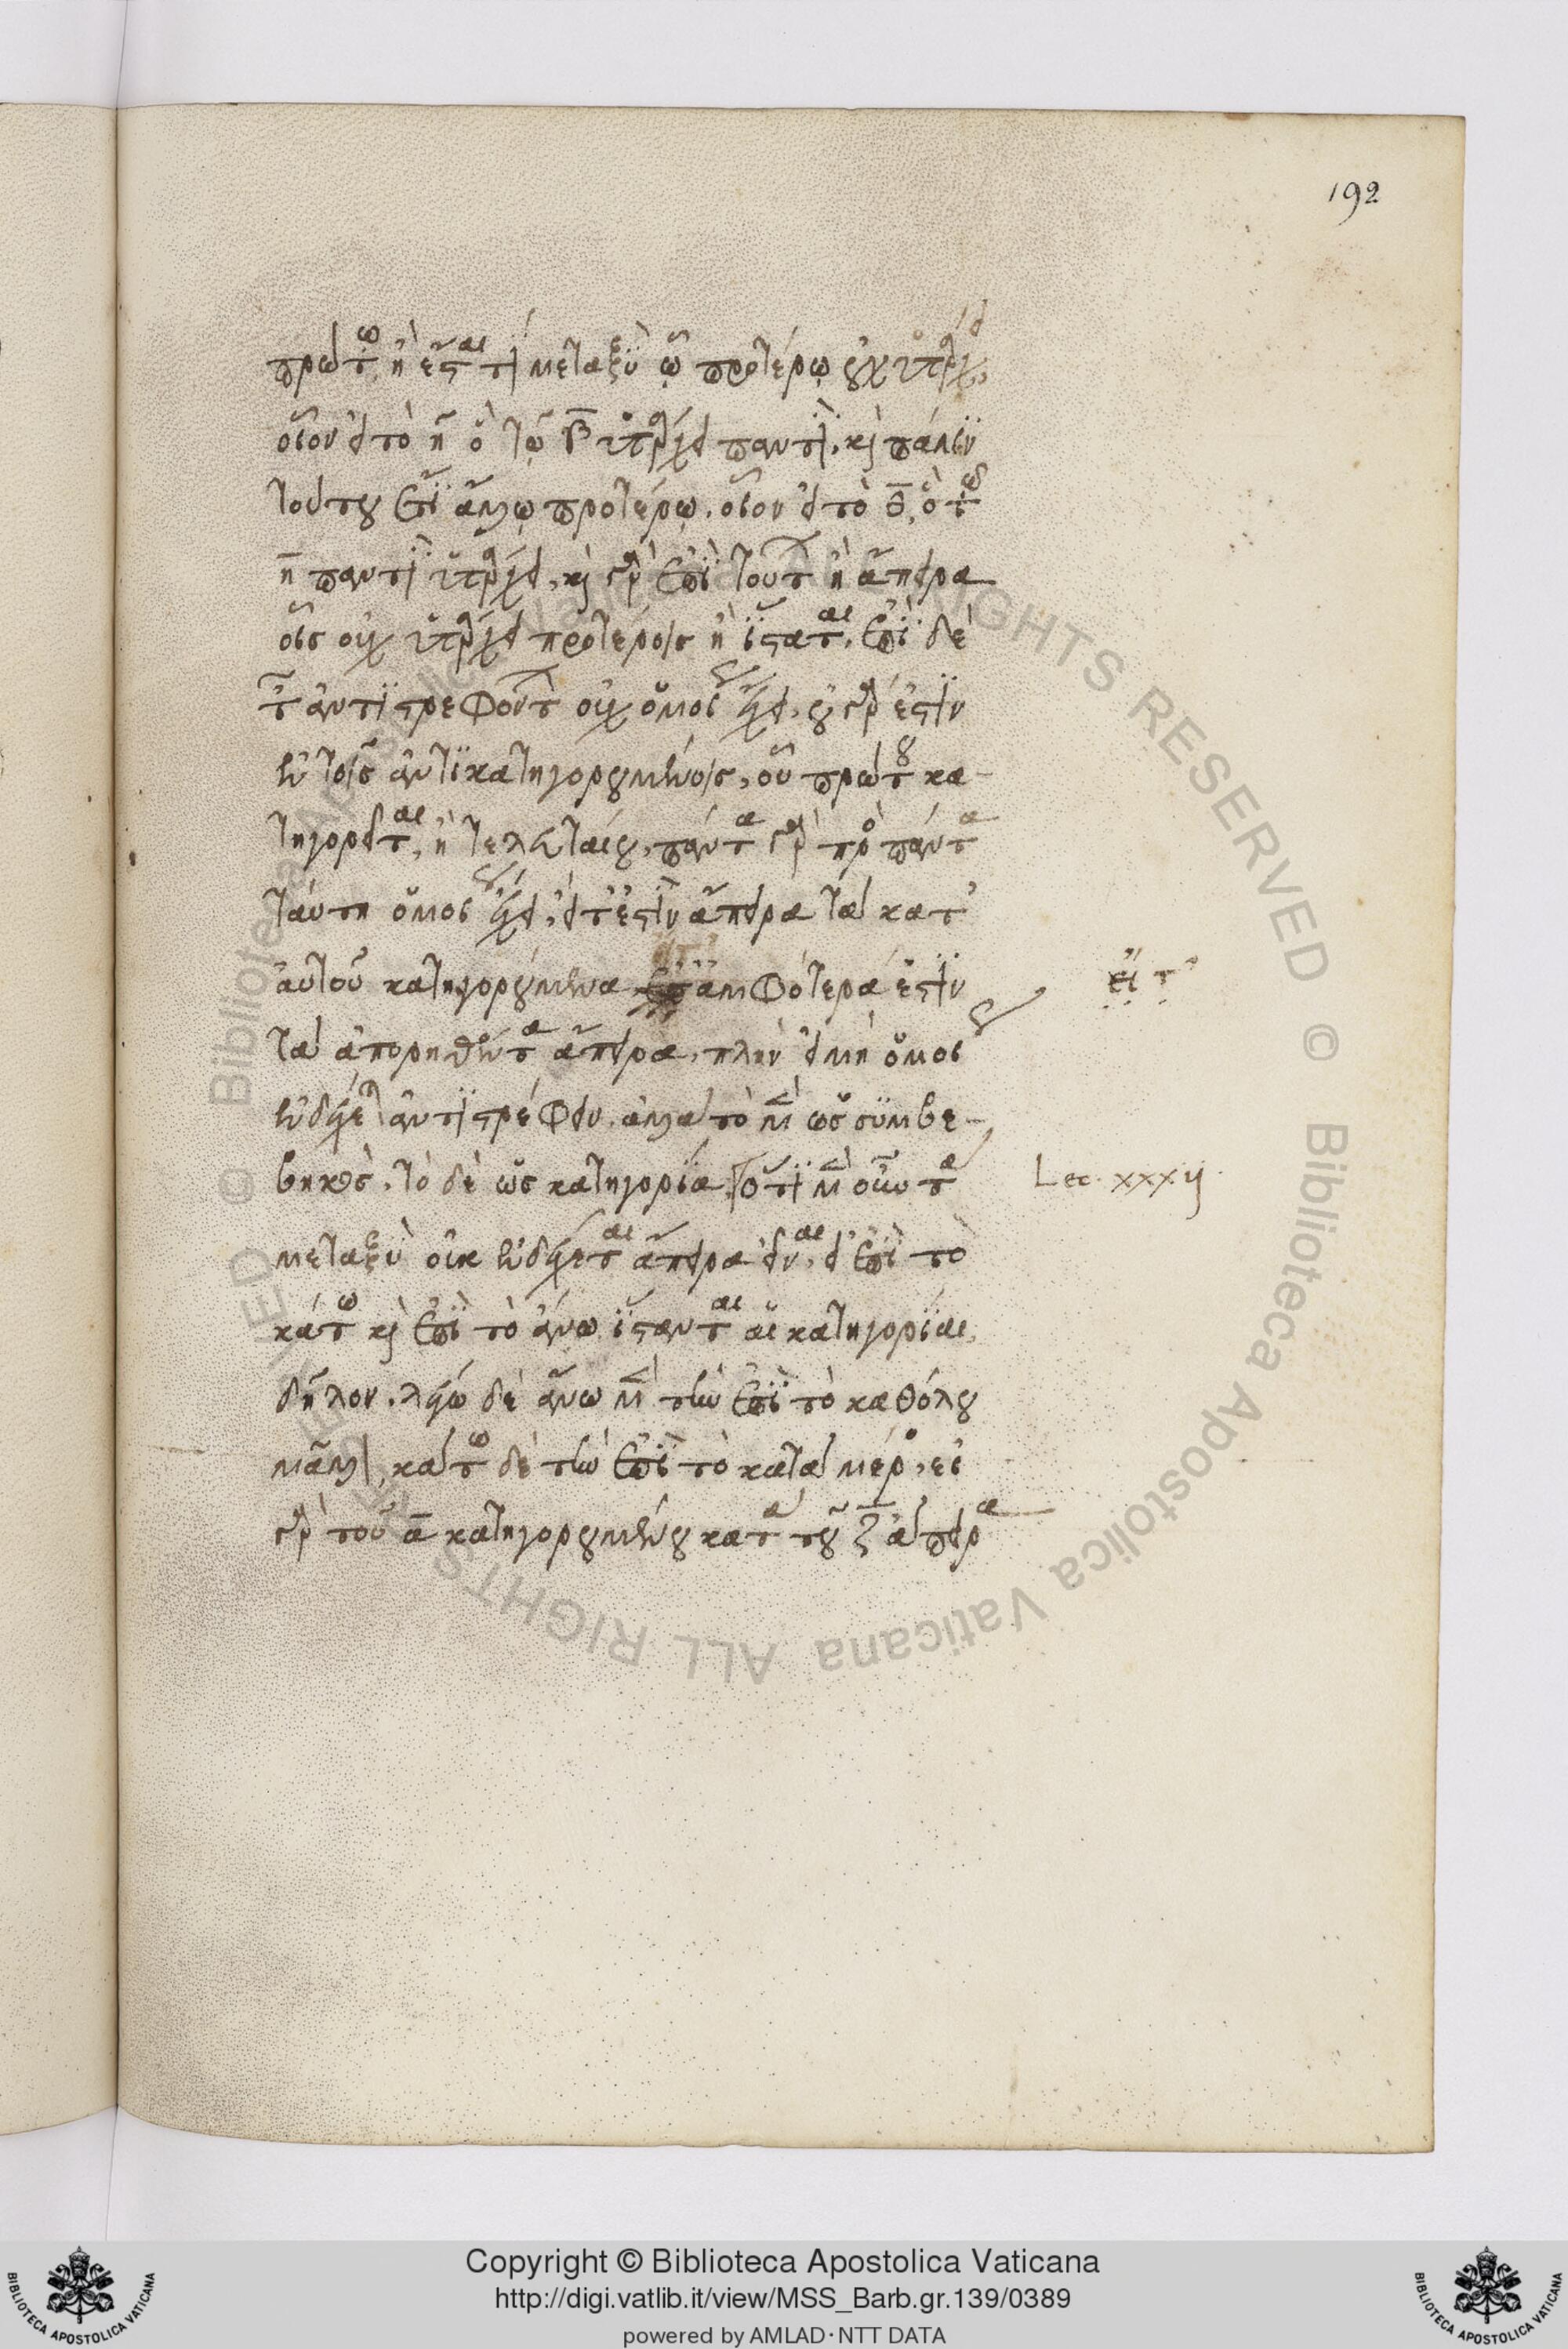 192
πρώτῳ, ἢ ἔσται τὶ μεταξὺ ᾧ προτέρῳ οὐχ ὑπάρχει,
οἷον εἰ τὸ η ὃ τῷ β ὑπάρχει παντὶ, καὶ πάλιν
τούτου ἔτι ἄλλῳ προτέρῳ. οἷον εἰ τὸ θ, ὃ τῷ
η παντὶ ὑπάρχει, καὶ γὰρ ἐπὶ τούτων ἢ ἄπειρα
οἷς οὐχ ὑπάρχει προτέροις ἢ ἵσταται. ἐπὶ δὲ
τῶν ἀντιστρεφόντων οὐχ ὁμοίως ἔχει, οὐ γὰρ ἐστὶν
ἐν τοῖς ἀντικατηγορουμένοις, οὗ πρώτου κα-
τηγορεῖται, ἢ τελευταίου, πάντα γὰρ πρὸς πάντα
ταύτη ὁμοίως ἔχει, εἴτ' ἐστὶν ἄπειρα τὰ κατ'
αὐτοῦ κατηγορούμενα, ἀμφότερά ἐστιν
εἴτ'
τὰ ἀπορηθέντα ἄπειρα, πλὴν εἰ μὴ ὁμοίως
ἐνδέχεται ἀντιστρέφειν. ἀλλὰ τὸ μὲν ὡς συμβε-
βηκὸς, τὸ δὲ ὡς κατηγορία. ὅτι μὲν οὖν τὰ
Lec. xxxij.
μεταξὺ οὐκ ἐνδέχεται ἄπειρα εἶναι, εἰ ἐπὶ τὸ
κάτω καὶ ἐπὶ τὸ ἄνω ἵστανται αἱ κατηγορίαι,
δῆλον. λέγω δὲ ἄνω μὲν τὴν ἐπὶ τὸ καθόλου
μᾶλλον, κάτω δὲ τὴν ἐπὶ τὸ κατὰ μέρος, εἰ
γὰρ τοῦ α κατηγορουμένου κατὰ τοῦ ζ ἄπειρα
Copyright © Biblioteca Apostolica Vaticana
http://digi.vatlib.it/view/MSS_Barb.gr.139/0389
powered by AMLAD·NTT DATA